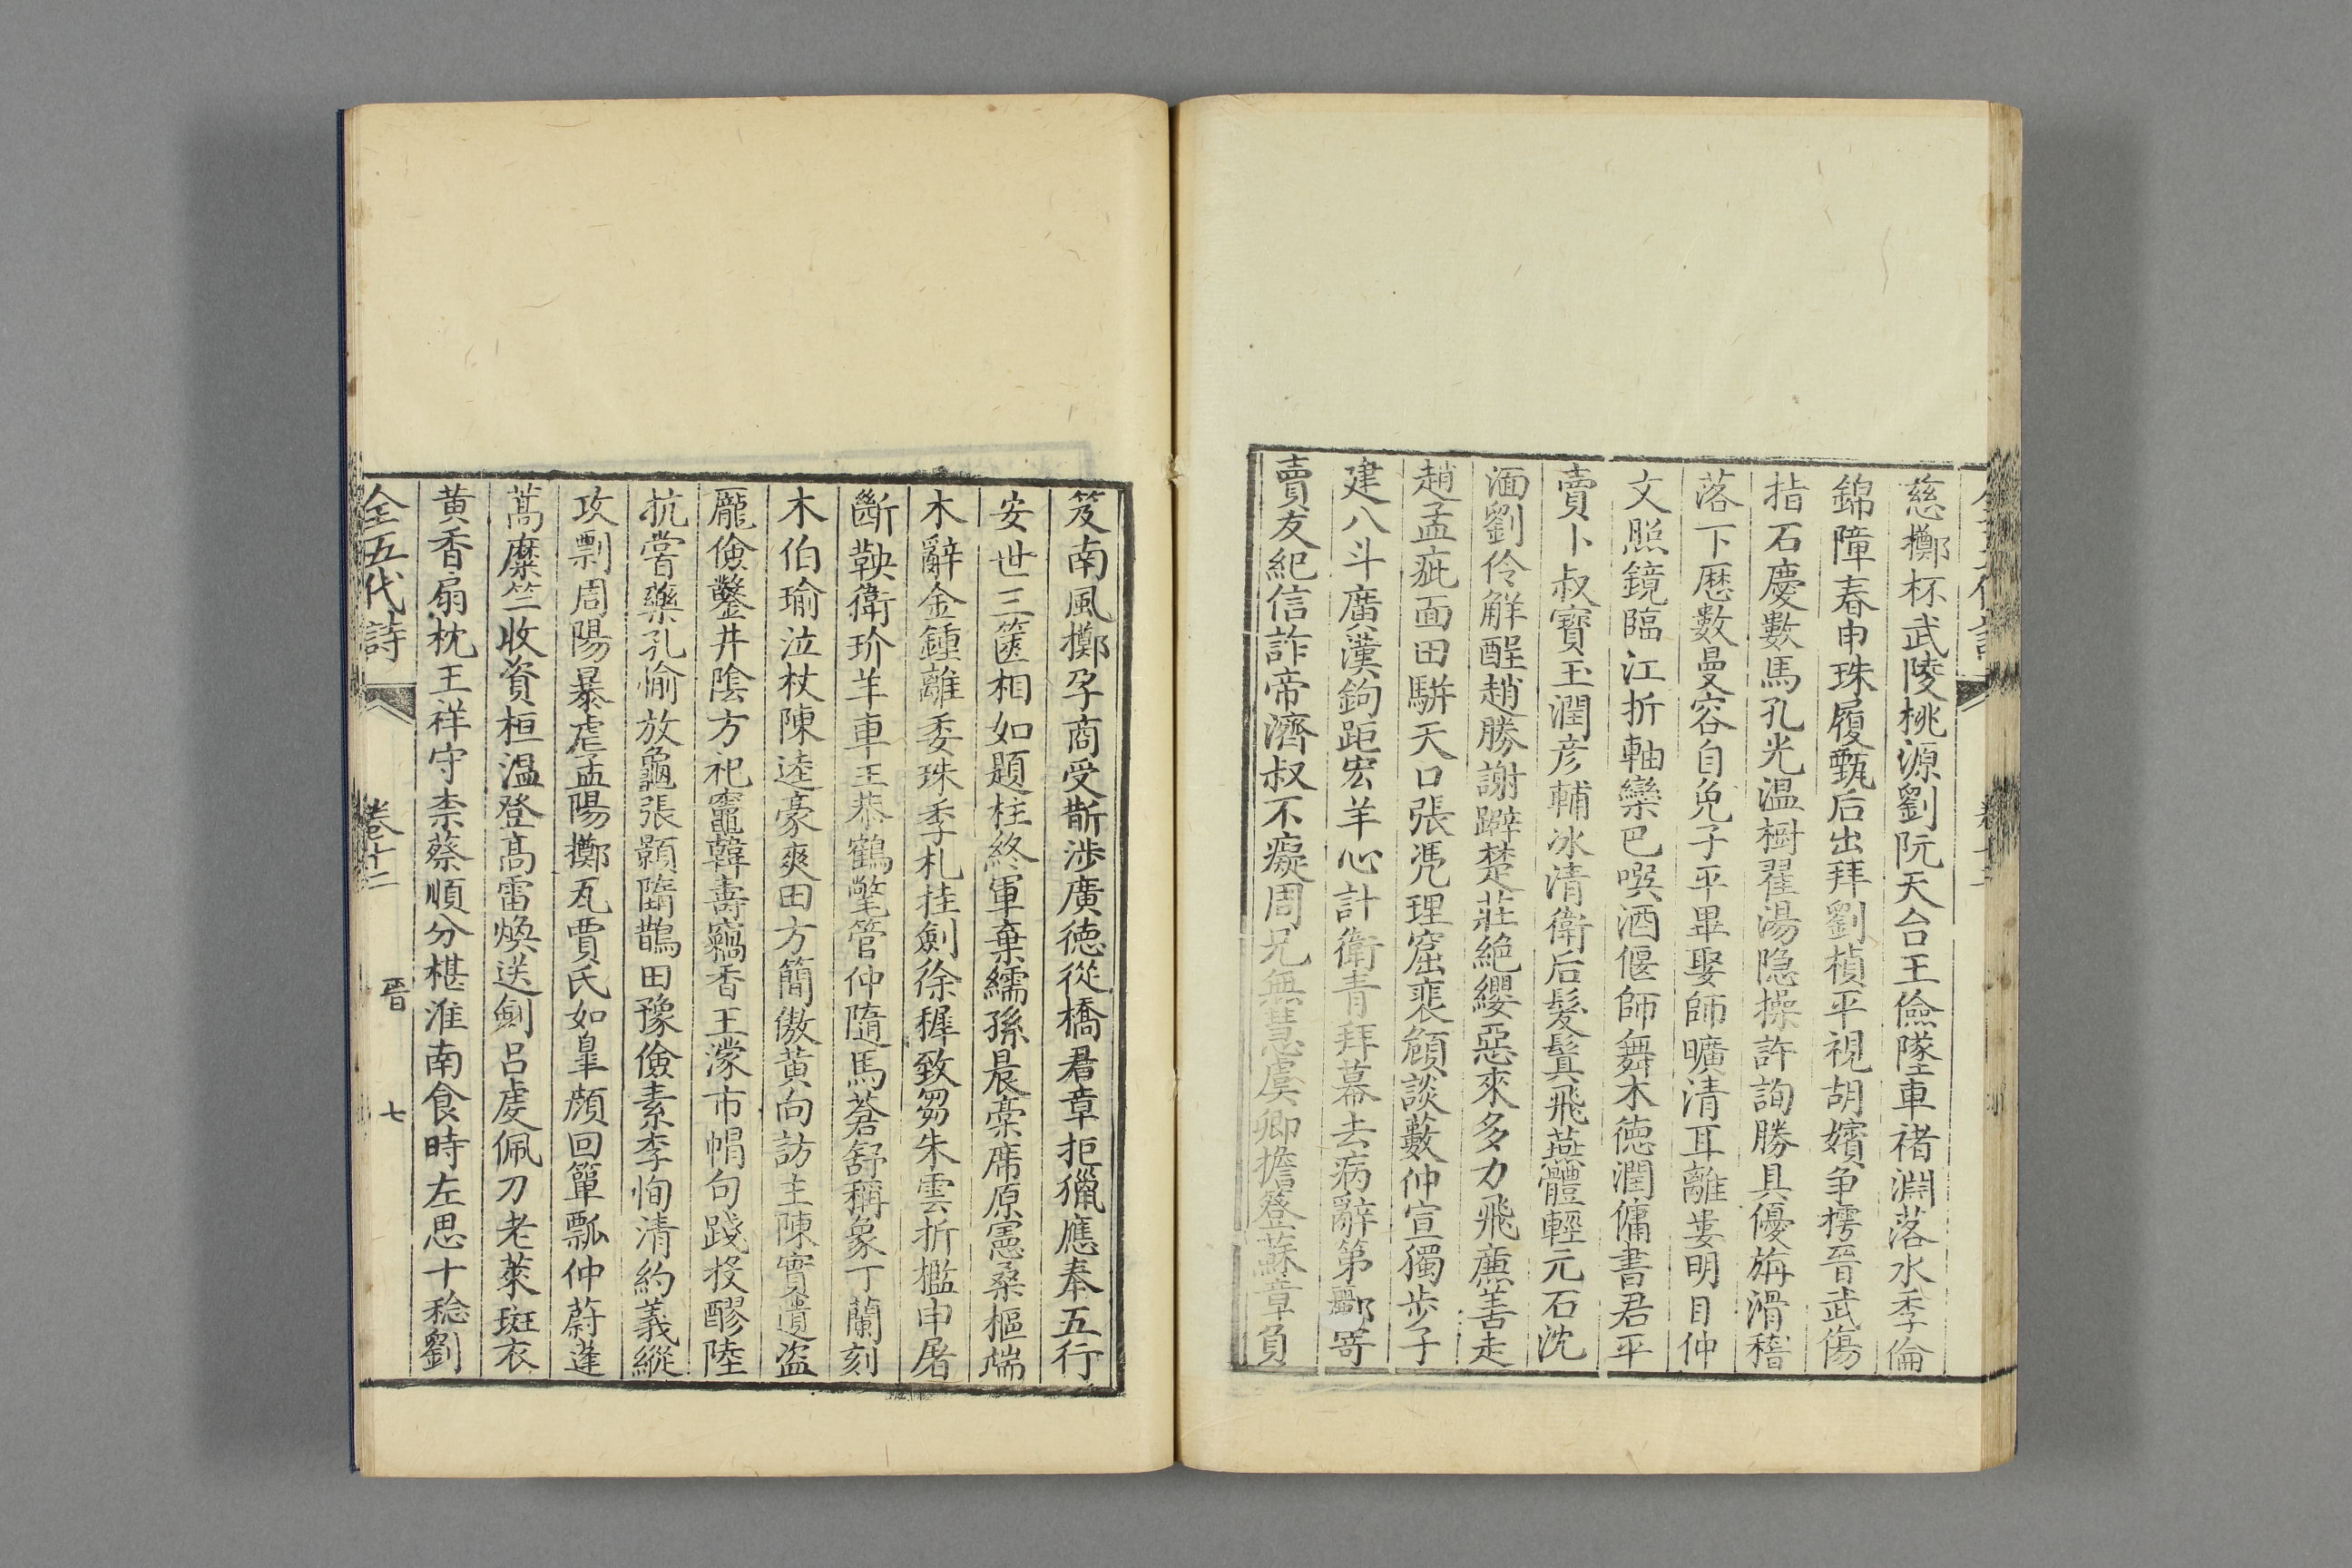 慈擲杯武陵桃源劉阮天台王儉墜車褚淵落水季倫
錦障春申珠履甄后出拜劉楨平視胡嬪争摴晉武傷
指石慶數馬孔光温樹翟湯隐操許詢勝具優旃滑稽
落下厯數曼容自免子平畢娶師曠清耳離婁明目仲
文照鏡臨江折軸欒巴噀酒偃師舞木徳潤傭書君平
賣卜叔寳玉潤彦輔冰清衛后髮鬒飛燕體輕元石沈
湎劉伶解酲趙勝謝躃楚莊絶纓惡來多力飛廉善走
趙孟疵面田駢天口張凭理窟裴頠談藪仲宣獨歩子
建八斗廣漢鉤距宏羊心計衛青拜幕去病辭第酈寄
賣友紀信詐帝濟叔不癡周兄無慧虞卿擔簦蘇章負
笈南風擲孕商受斮涉廣徳從橋君章拒獵應奉五行
安世三篋相如題柱終軍棄繻孫晨槀席原憲桑樞端
木辭金鍾離委珠季札挂劍徐穉致芻朱雲折檻申屠
斷鞅衛玠羊車王恭鶴氅管仲隨馬蒼舒稱象丁蘭刻
木伯瑜泣杖陳逵豪爽田方簡傲黄向訪主陳寔遺盗
龎儉鑿井隂方祀竈韓壽竊香王濛市帽句踐投醪陸
抗嘗藥孔愉放龜張顥隨鵲田豫儉素李恂清約義縱
攻剽周陽暴虐孟陽擲瓦賈氏如臯顔回簞瓢仲蔚蓬
蒿麋竺收資桓温登髙雷煥送劍吕虔佩刀老萊斑衣
黄香扇枕王祥守柰蔡順分椹淮南食時左思十稔劉
全五代詩 卷十二 晋 七